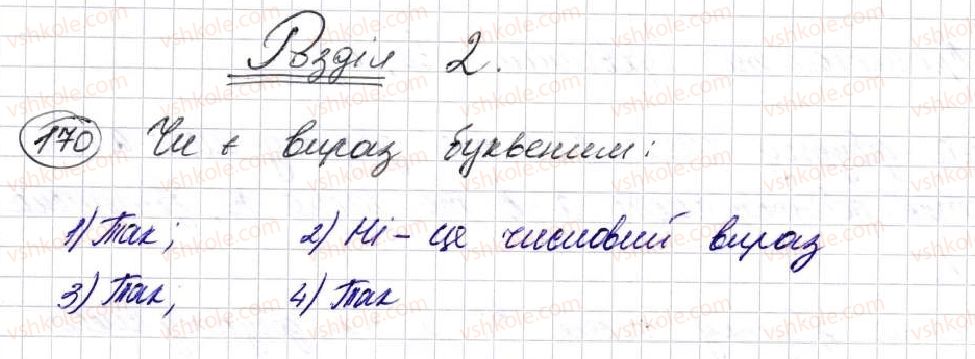 Розділ 2.
170. Чи є вираз буквеним:
1) Так; 2) Ні - це числовий вираз
3) Так, 4) Так